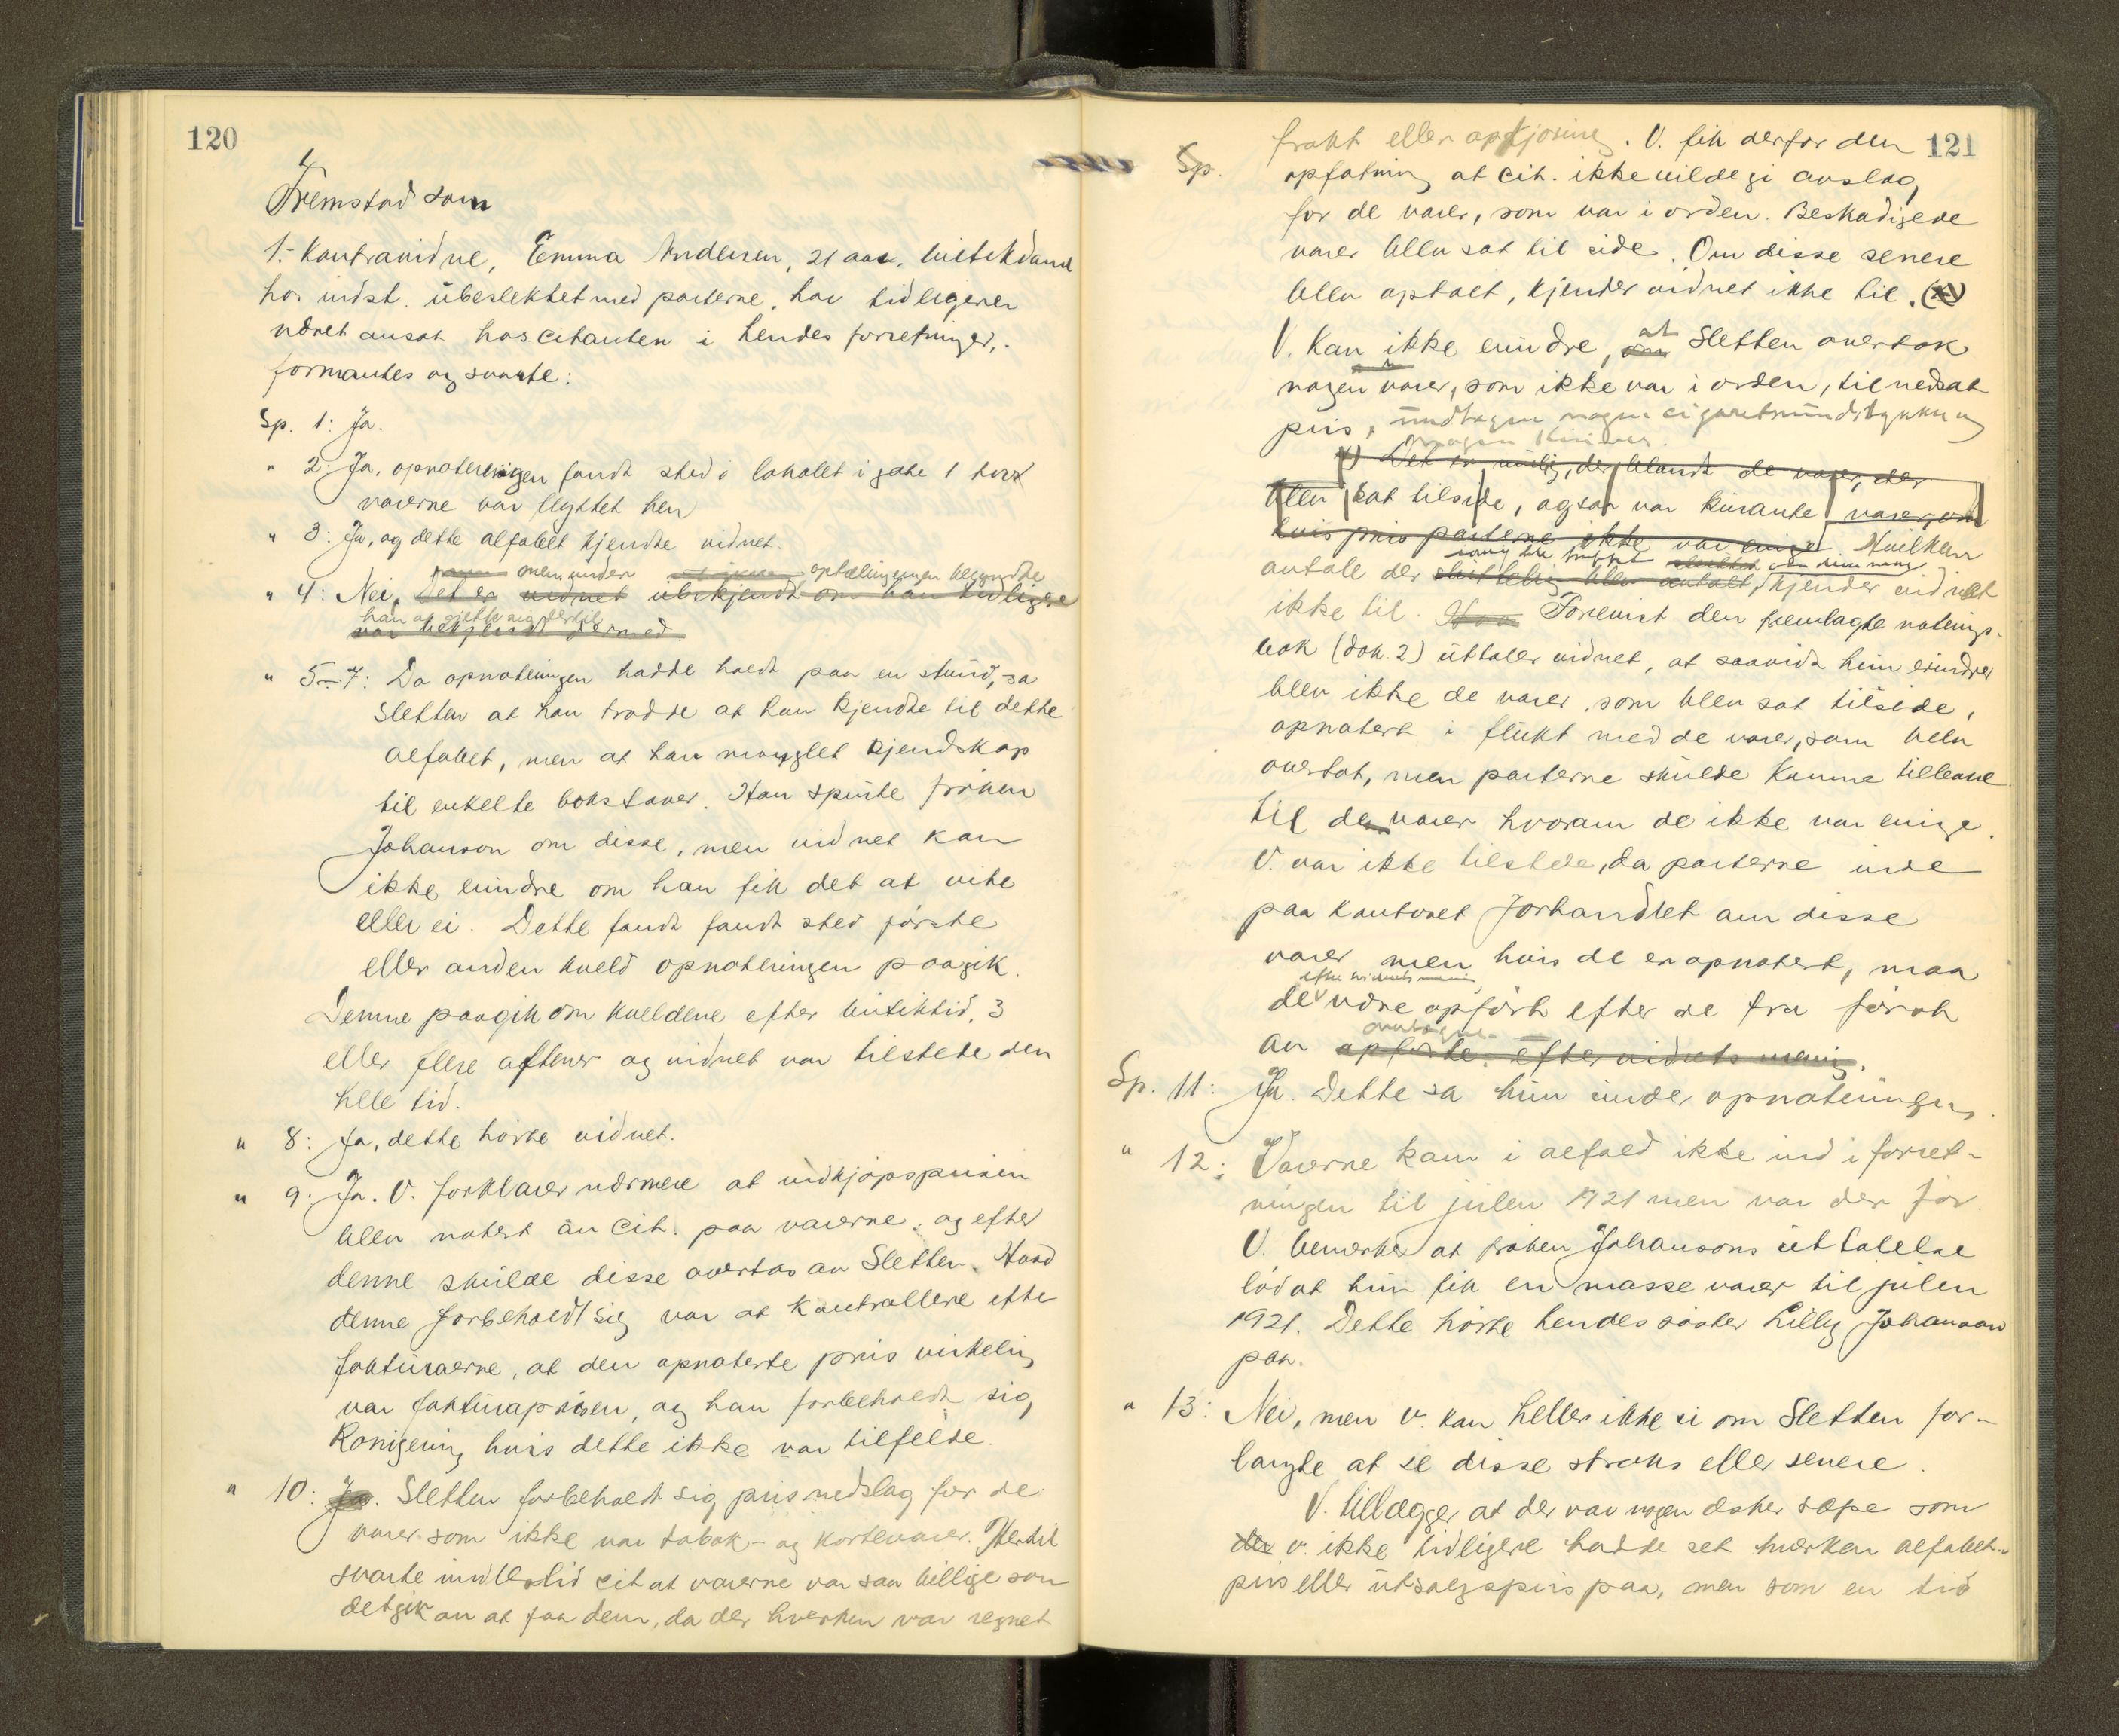 120
Fremstod som
1. Kontravidne, Emma Andersen, 21 aar, butikdame
hos indst. übeslektet med parterne, har tidligere
været ansat hos citanten i hendes forretninger,
formantes og svarte:
Sp. 1: Ja.
" 2: Ja, opnoteringen fandt sted i lokalet i gate 1 hvor
varerne var flyttet hen
" 3: Ja, og dette alfabet kjendte vidnet.
men under optællingen begyndte
" 4: Nei, det er vidnet übekjendt om han tidligere
han at sætte sig dertil
var bekjendt dermed.
" 5-7: Da opnoteringen hadde holdt paa en stund, sa
Sletten at han trodde at han kjendte til dette
alfabet, men at han manglet kjendskap
til enkelte bokstaver. Han spurte frøken
Johanson om disse, men vidnet kan
ikke erindre om han fik det at vite
eller ei. Dette fandt fandt sted første
eller anden kveld opnoteringen paagik.
Denne paagik om kveldene efter butiktid, 3
eller flere aftener og vidnet var tilstede den
hele tid.
" 8: Ja, dette hørte vidnet.
" 9: Ja. V. forklarer nærmere at indkjøpsprisen
blev notert av cit. paa varerne, og efter
denne skulde disse overtas av Sletten. Hvad
denne forbeholdt sig var at kontrollere efter
fakturaerne, at den opnoterte pris virkelig
var fakturaprisen, og han forbeholdt sig
korrigering hvis dette ikke var tilfelde.
" 10: Ja. Sletten forbeholdt sig prisnedslag for de
varer som ikke var tobak- og kortevarer. Hertil
svarte imidlertid cit at varerne var saa billige som
det gik an at faa dem, da der hverken var regnet
121
Sp. frakt eller opkjøring. V. fik derfor den
opfatning at cit. ikke vilde gi avslag
for de varer, som var i orden. Beskadigede
varer blev sat til side. Om disse senere
blev optalt, kjender vidnet ikke til. (x)
at
V. kan ikke erindre, om Sletten overtok
nogen varer, som ikke var i orden, til nedsat
pris, undtagen nogen cigaretmundstykker og
nogen
x) Det er mulig, der blandt de varer, der
blev sat tilside, ogsaa var kurante varer, om
hvis pris parterne ikke var enige. Hvilken
antall der blev antalt, kjender vidnet
ikke til. Forevist den fremlagte noterings-
bok (dok. 2) uttaler vidnet, at saavidt hun erindrer
blev ikke de varer, som blev sat tilside,
opnotert i flukt med de varer, som blev
overtat, men parterne skulde komme tilbake
til de varer hvorom de ikke var enige.
V. var ikke tilstede, da parterne inde
paa kontoret forhandlet om disse
varer, men hvis de er opnotert, maa
efter vidnets mening
de være opført efter de fra først
av opførte efter vidnets mening.
Sp. 11: Ja. Dette sa hun under opnoteringen.
" 12: Varerne kom i alfald ikke ind i forret-
ningen til julen 1921 men var der før.
V. bemerker at frøken Johansons uttalelse
lød at hun fik en masse varer til julen
1921. Dette hørte hendes søster Lilly Johanson
paa.
" 13: Nei, men v. kan heller ikke si om Sletten for-
langte at se disse straks eller senere.
V. tillægger at der var nogen æsker sæpe som
der v. ikke tidligere hadde set hverken alfabet-
pris eller utsalgspris paa, men som en tid